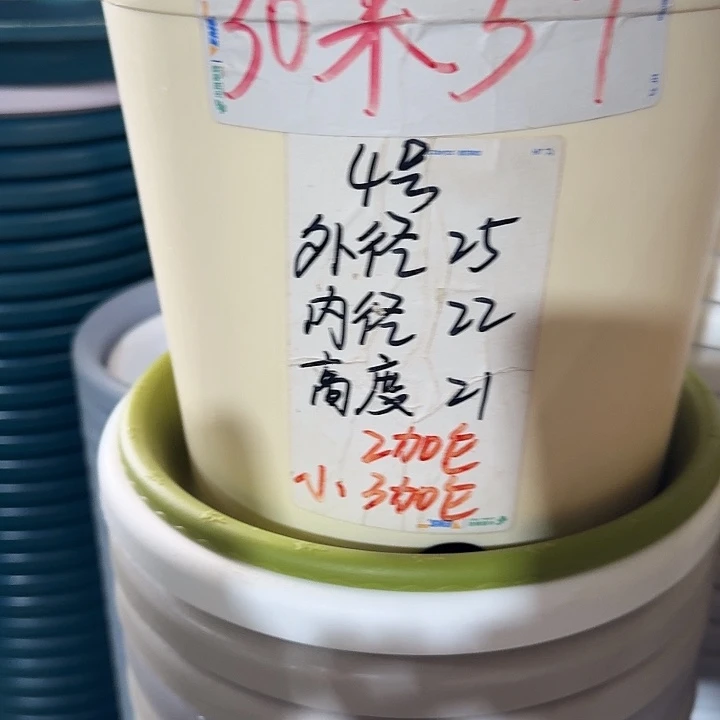 30米5个
4号
外径 25
内径 22
高度 21
2加仑
小 3加仑